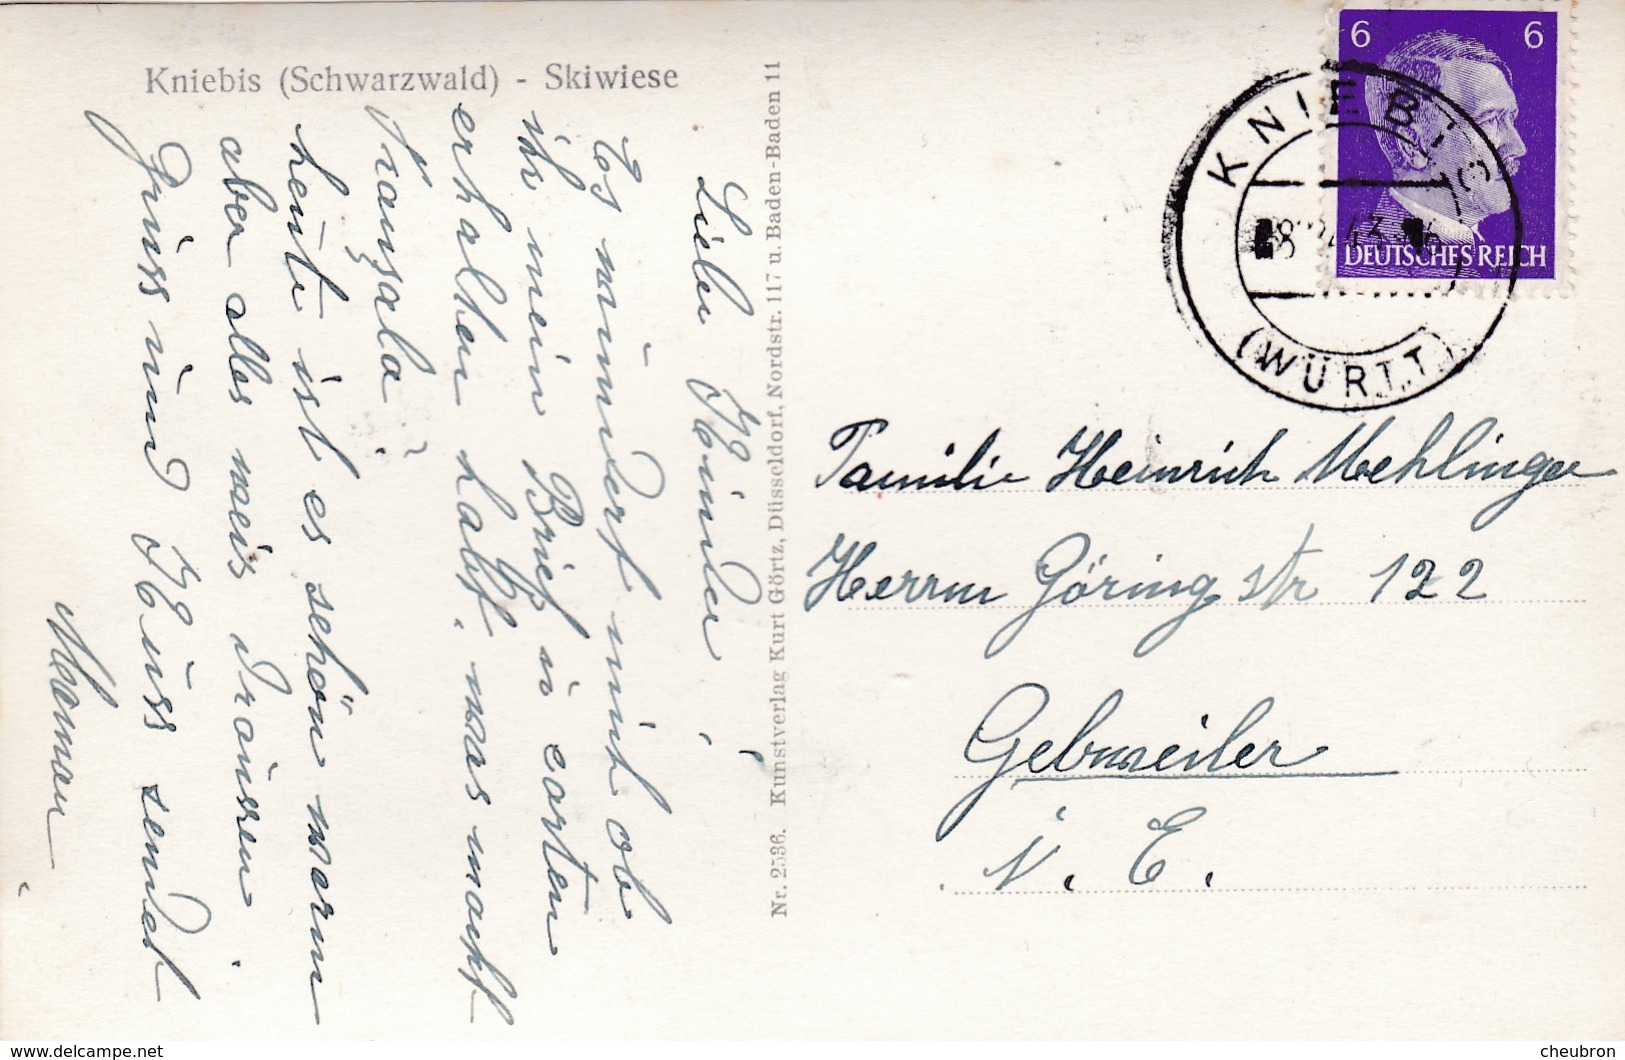 Kniebis (Schwarzwald) - Skiwiese
Liebe Kinder!
Es nimdert mich ob
ihr mein Brief u carten
erhalten habt. was macht
Fransala!
heute ist es schön warm
aber alles weis draussen
Gruss und Küss sendet
Maman
Nr. 2536. Kunstverlag Kurt Görtz, Düsseldorf, Nordstr. 117 u. Baden-Baden 11
6 6
DEUTSCHES REICH
KNIEBIS
(WÜRTT)
Familie Heinrich Mehlinger
Herrm Göring str 122
Gebweiler
i. E.
www.delcampe.net
cheubron